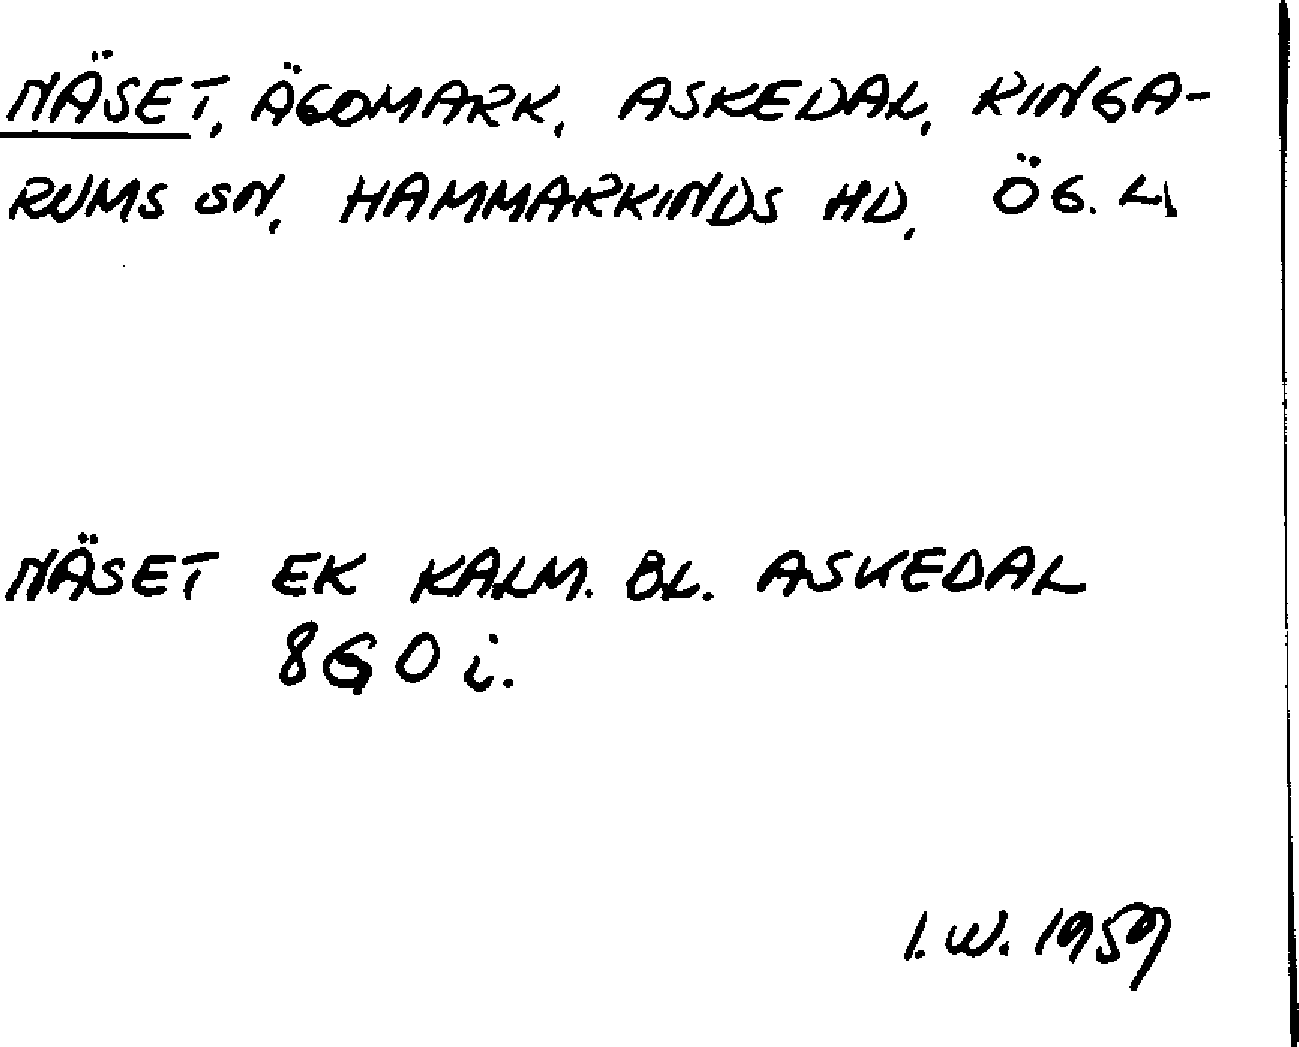 NÄSET, ÄGOMARK, ASKEDAL, RINGA-
RUMS SN, HAMMARKINDS HD, ÖG. L.
NÄSET EK KALM. BL. ASKEDAL
8G0 i.
I.W. 1959